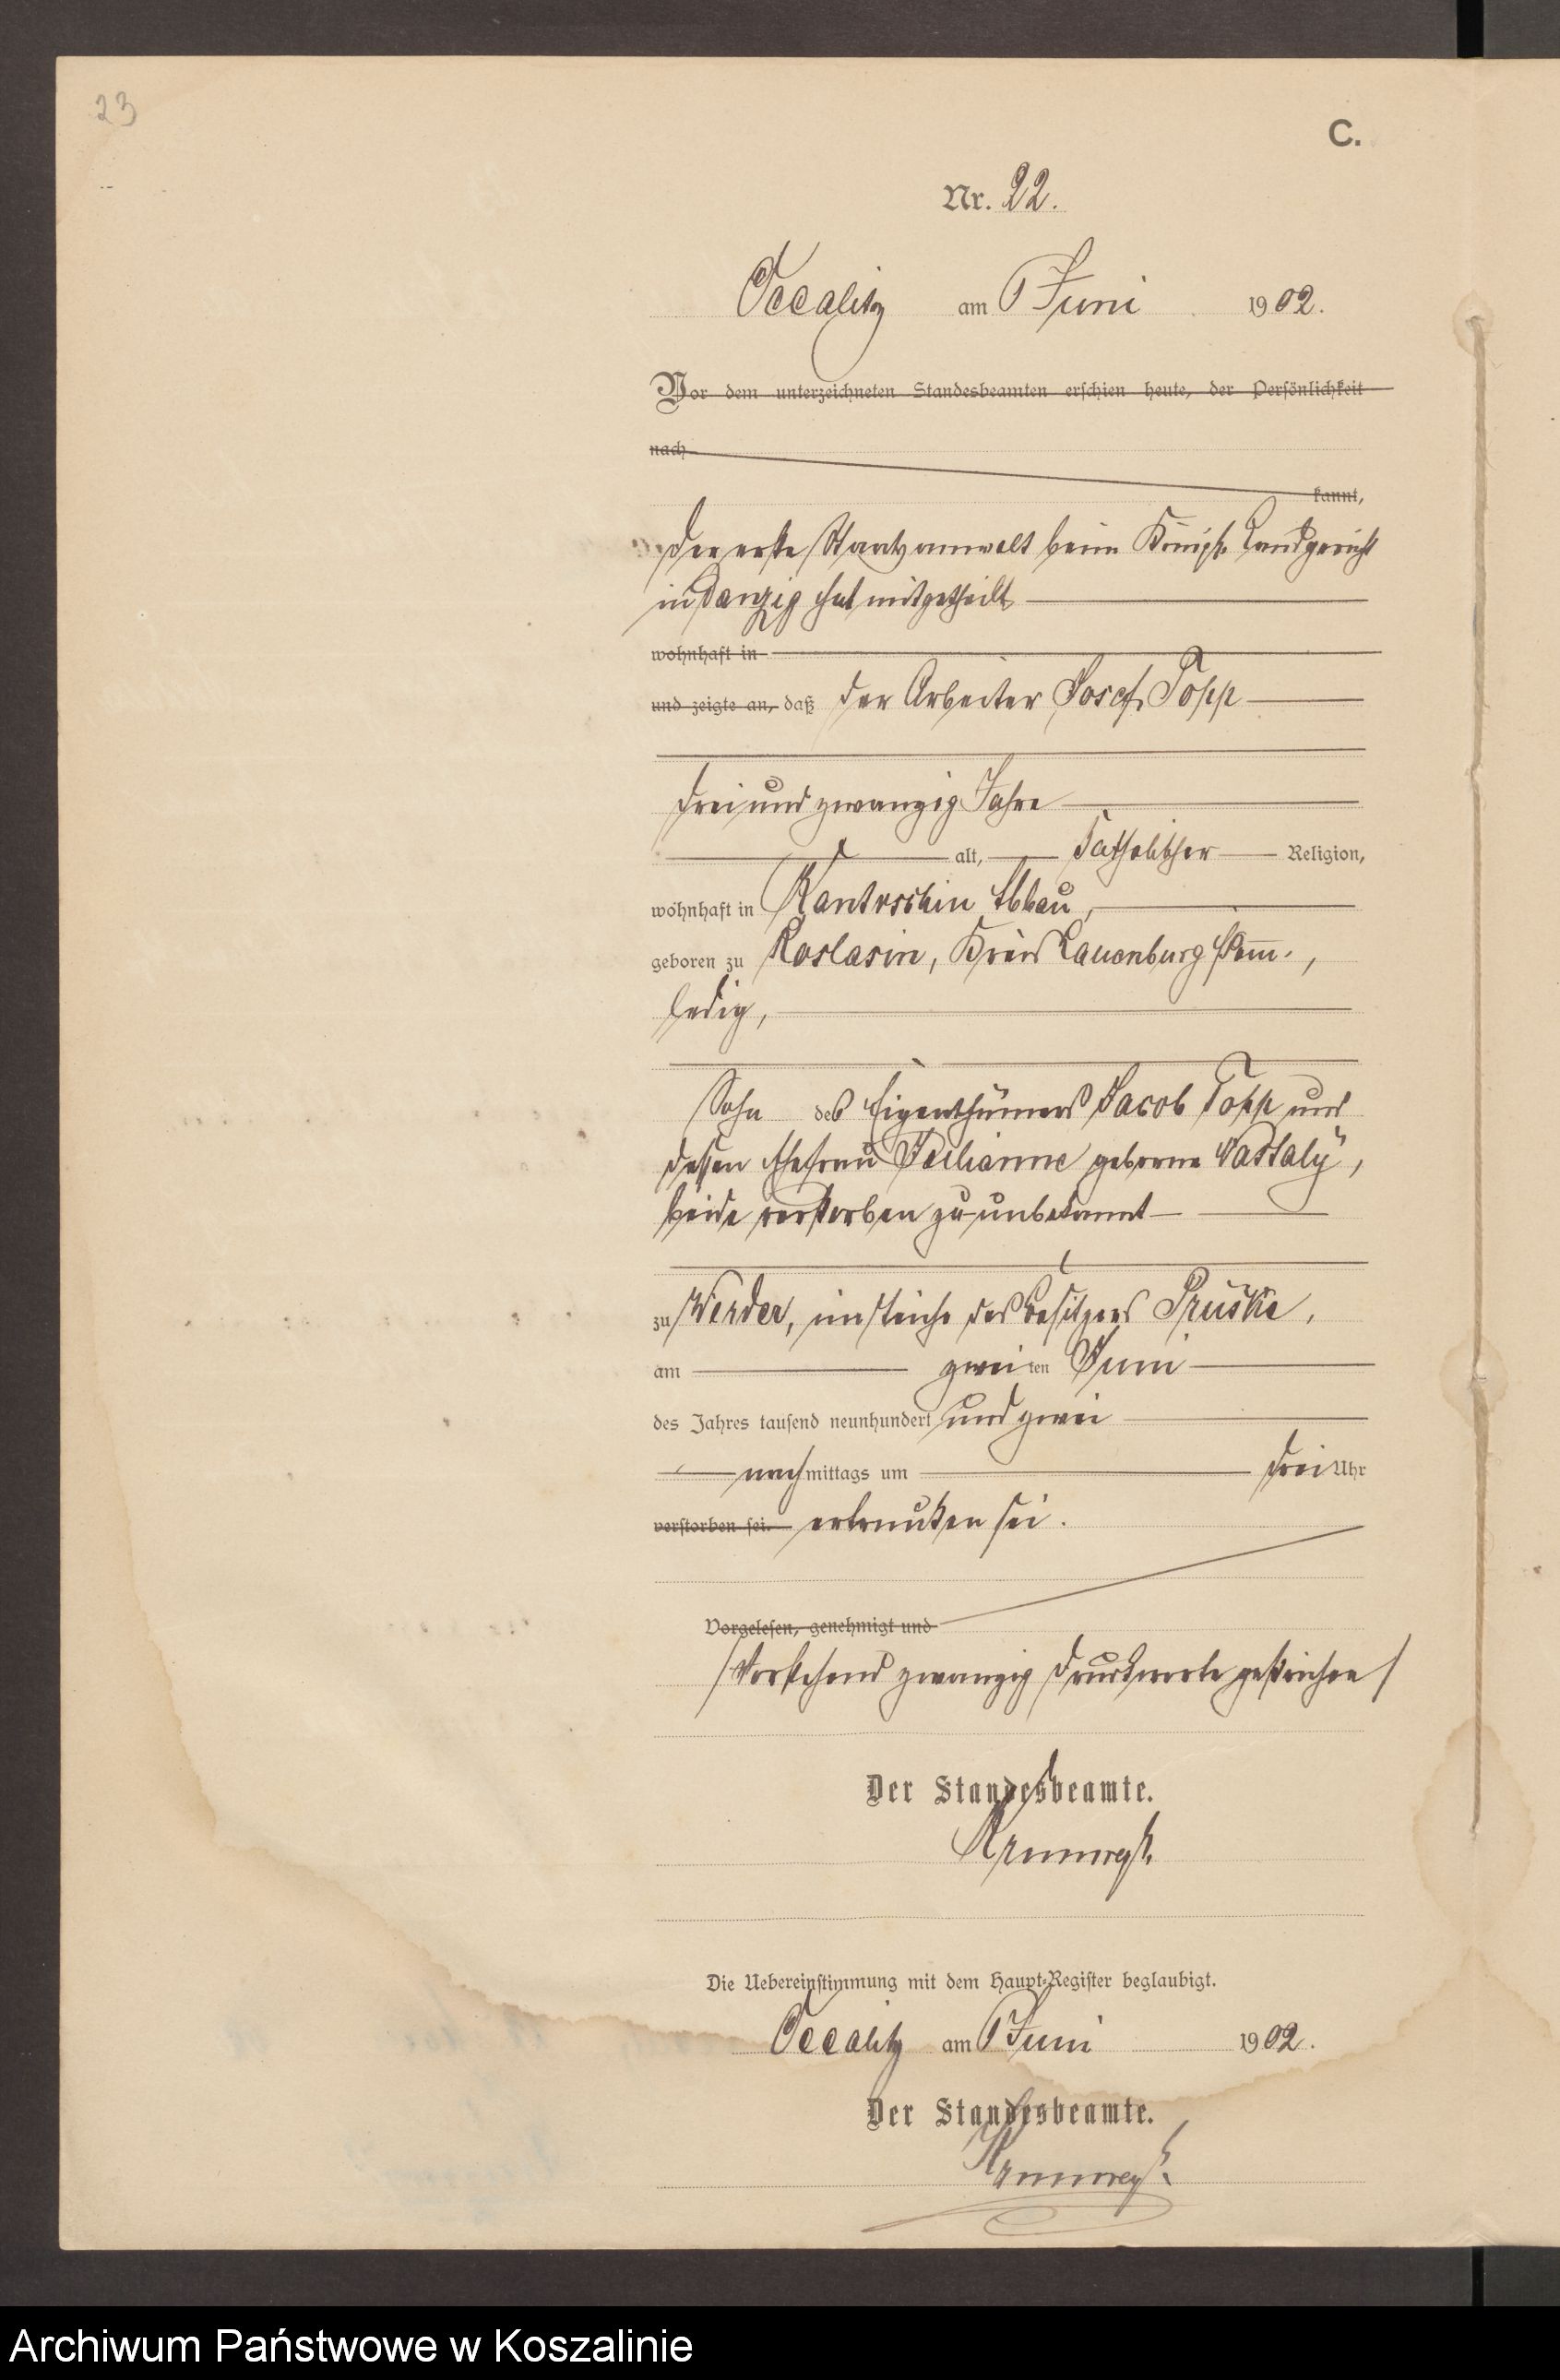 23
C.
Nr. 22.
Occalitz am Juni 1902.
Vor dem unterzeichneten Standesbeamten erschien heute, der Persönlichkeit
nach
kannt,
Der erste Staatsanwalt beim Königl. Landgericht
in Danzig hat mitgetheilt
wohnhaft in
und zeigte an, daß der Arbeiter Josef Topp
drei und zwanzig Jahre
alt, katholischer Religion,
wohnhaft in Kantrschin Abbau,
geboren zu Roslasin, Kreis Lauenburg Pom.,
ledig,
Sohn des Eigenthümers Jacob Topp und
dessen Ehefrau geborne
beide verstorben zu unbekannt
zu Werder, im Teiche des Besitzers Prüske,
am zweiten Juni
des Jahres tausend neunhundert und zwei
nachmittags um drei Uhr
verstorben sei. ertrunken sei.
Vorgelesen, genehmigt und
/Vorstehend zwanzig Druckworte gestrichen/
Der Standesbeamte.
Die Uebereinstimmung mit dem Haupt-Register beglaubigt.
Occalitz am Juni 1902.
Der Standesbeamte.
Archiwum Państwowe w Koszalinie